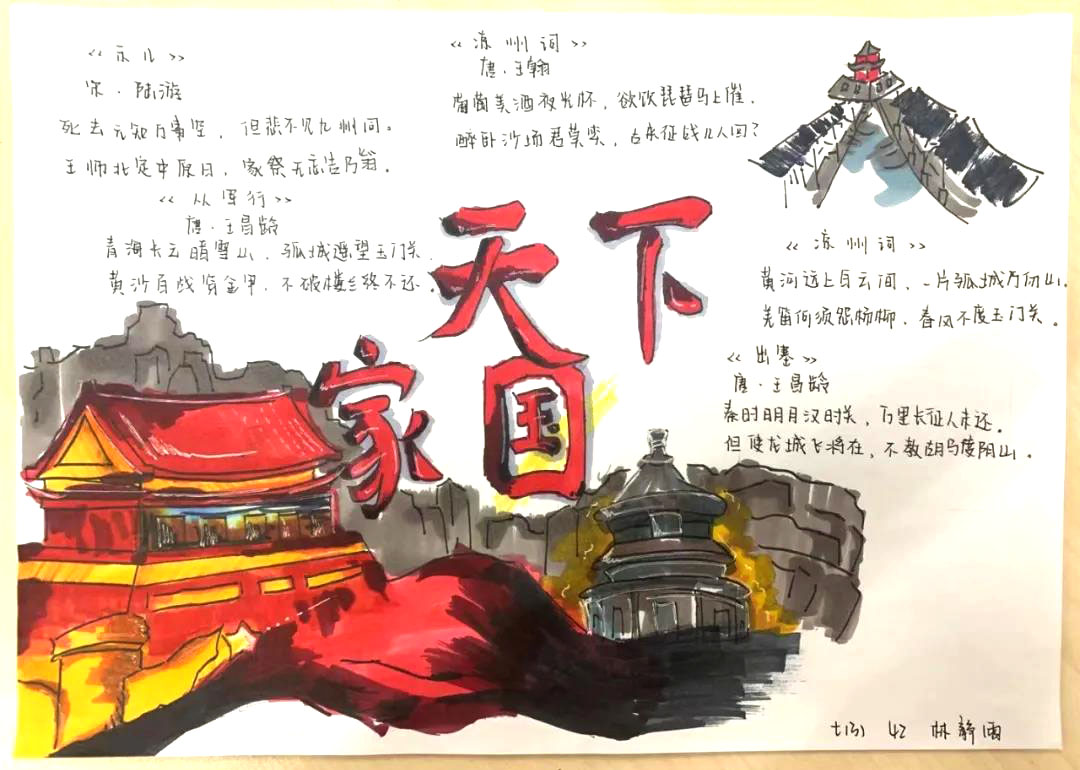 《示儿》
宋·陆游
死去元知万事空，但悲不见九州同。
王师北定中原日，家祭无忘告乃翁。
《从军行》
唐·王昌龄
青海长云暗雪山，孤城遥望玉门关。
黄沙百战穿金甲，不破楼兰终不还。
《凉州词》
唐·王翰
葡萄美酒夜光杯，欲饮琵琶马上催。
醉卧沙场君莫笑，古来征战几人回？
天下
家国
《凉州词》
黄河远上白云间，一片孤城万仞山。
羌笛何须怨杨柳，春风不度玉门关。
《出塞》
唐·王昌龄
秦时明月汉时关，万里长征人未还。
但使龙城飞将在，不教胡马度阴山。
七(3) 42 林静雨